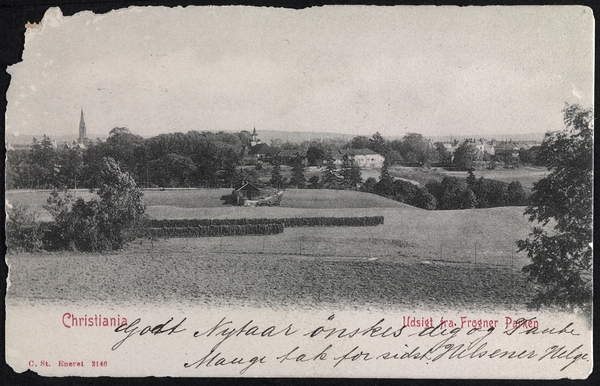 Christiania
Udsigt fra Frogner Parken
Godt Nytaar ønskes dig og Tante
Mange tak for sidst Hilsener Helge
C. St. Eneret 2146